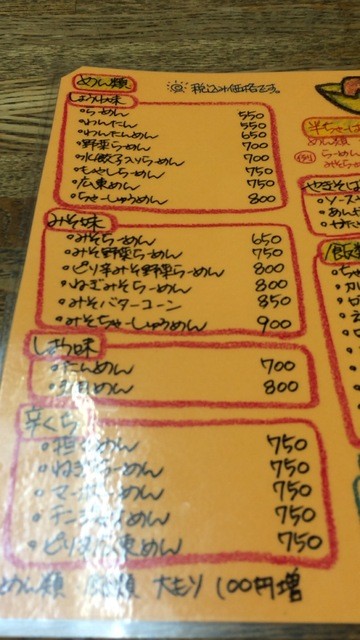 めん類
税込み価格です。
しょうゆ味
・らーめん 550
・わんたん 550
・わんたんめん 650
・野菜らーめん 700
・水餃子入りらーめん 700
・もやしらーめん 750
・広東めん 750
・ちゃーしゅうめん 800
みそ味
・みそらーめん 650
・みそ野菜らーめん 750
・ピリ辛みそ野菜らーめん 800
・ねぎみそらーめん 800
・みそバターコーン 850
・みそちゃーしゅうめん 900
しお味
・たんめん 700
800
辛くち
・担々めん 750
・ねぎらーめん 750
・マーボーめん 750
750
・ピリ辛広東めん 750
めん類 大もり 100円増
半ちゃ
めん類
(例)
らーめん
みそらー
やきそば
・ソース
・あん